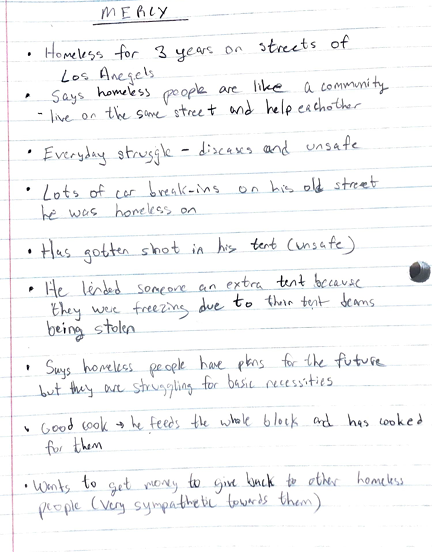 MERCY
• Homeless for 3 years on streets of
Los Anegels
• Says homeless people are like a community
- live on the same street and help eachother
• Everyday struggle - diseases and unsafe
• Lots of car break-ins on his old street
he was homeless on
• Has gotten shot in his tent (unsafe)
• He lended someone an extra tent because
they were freezing due to their tent beams
being stolen
• Says homeless people have plans for the future
but they are struggling for basic necessities
• Good cook → he feeds the whole block and has cooked
for them
• Wants to get money to give back to other homeless
people (very sympathetic towards them)